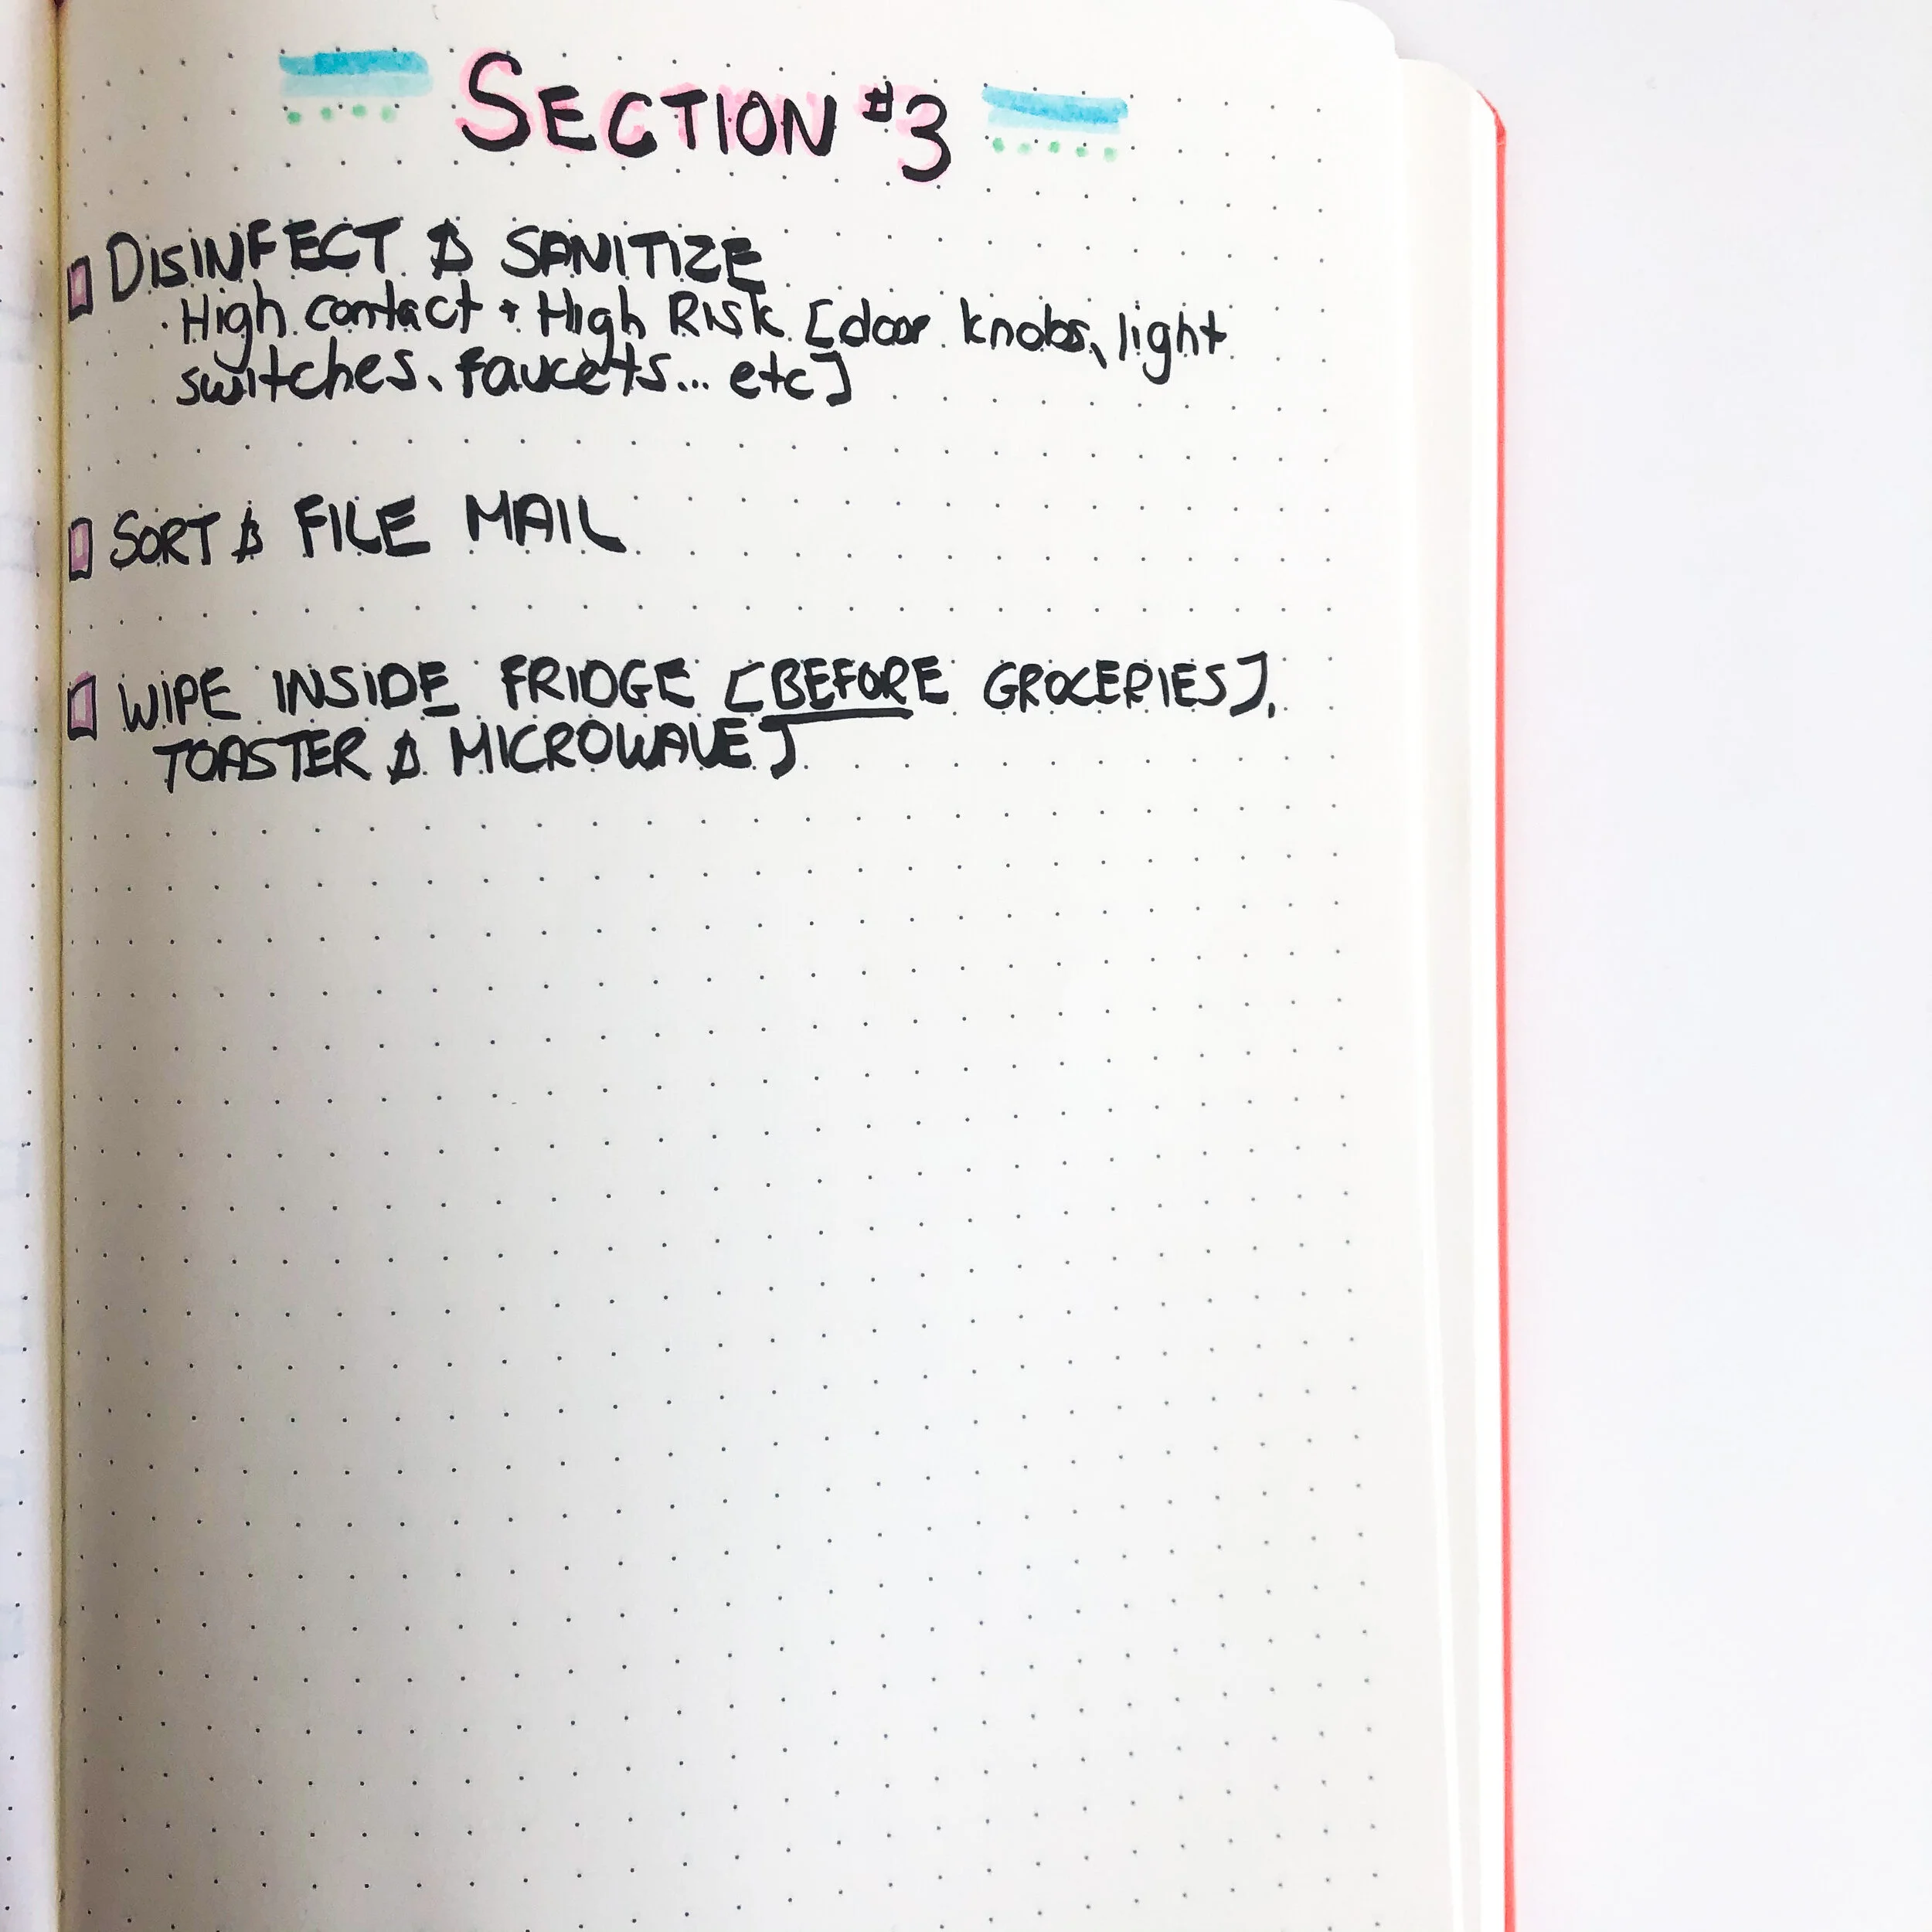 SECTION #3
DISINFECT & SANITIZE
High contact + High Risk [door knobs, light
switches, faucets... etc]
SORT & FILE MAIL
WIPE INSIDE FRIDGE [BEFORE GROCERIES],
TOASTER & MICROWAVE]